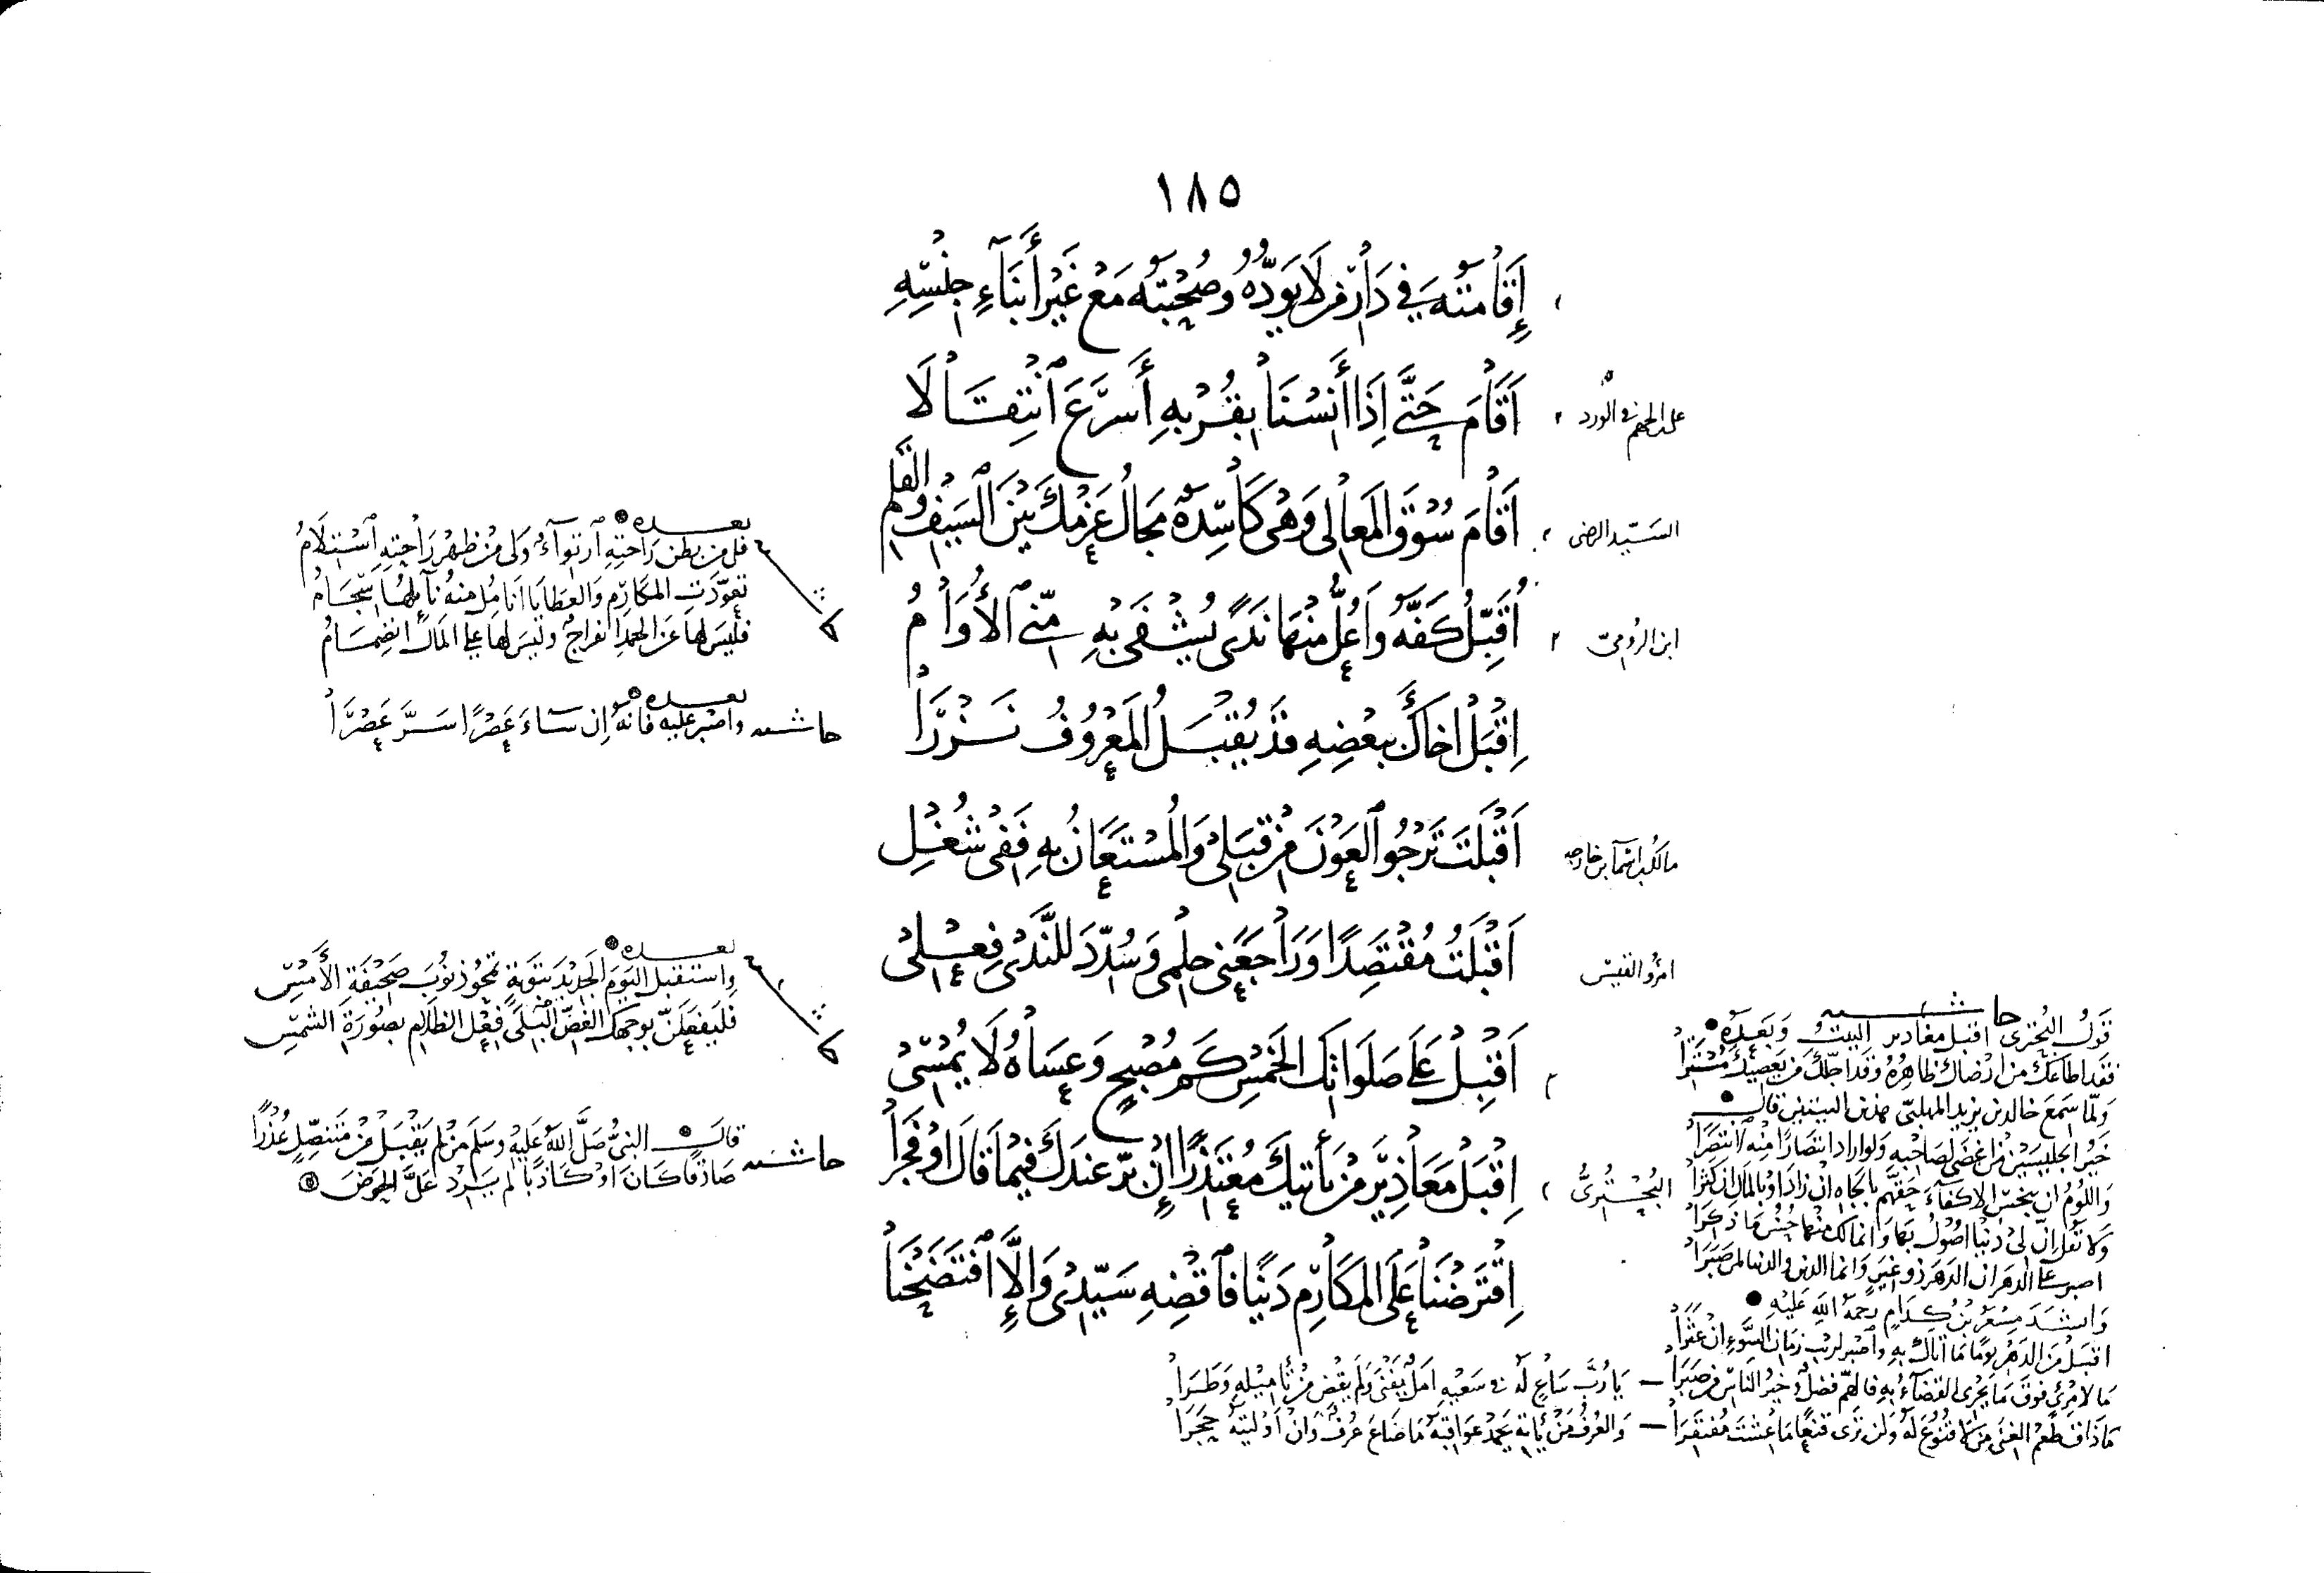 ١٨٥
إِقَامَتُهُ فِي دَارِ مَنْ لَا يَوَدُّهُ وَصُحْبَتُهُ مَعْ غَيْرِ أَبْنَاءِ جِنْسِهِ
على بن الجهم في الورد
أَقَامَ حَتَّى إِذَا أَنِسْنَا بِقُرْبِهِ أَسْرَعَ انْتِقَالَا
السيد الرضى
أَقَامَ سُوْقَ المَعَالِي وَهْيَ كَاسِدَةٌ مَجَالُ عَزْمِكَ بَيْنَ السَّيْفِ وَالْقَلَمِ
ابن الرومى
أُقَبِّلُ كَفَّهُ وَأَعُلُّ مِنْهَا نَدًى يُشْفَى بِهِ مِنِّي الأُوَامُ
إِقْبَلْ أَخَاكَ بِبَعْضِهِ قَدْ يُقْبَلُ المَعْرُوفُ نَزْرَا
مالك بن اسماء بن خارجه
أَقْبَلْتَ تَرْجُو العَوْنَ مِنْ قِبَلِيْ وَالْمُسْتَعَانُ بِهِ فَفِي شُغْلِ
امرؤ القيس
أَقْبَلْتُ مُقْتَصِدًا وَرَاجَعَنِي حِلْمِي وَسُدِّدَ لِلنَّدَى فِعْلِي
أَقْبِلْ عَلَى صَلَوَاتِكَ الخَمْسِ كَمْ مُصْبِحٍ وَعَسَاهُ لَا يُمْسِي
البحترى
إِقْبَلْ مَعَاذِيرَ مَنْ يَأْتِيكَ مُعْتَذِرًا إِنْ بَرَّ عِنْدَكَ فِيْمَا قَالَ أَوْ فَجَرَا
إِقْتَرَضْنَا عَلَى المَكَارِمِ دَيْنًا فَاقْضِهِ سَيِّدِي وَإِلَّا افْتَضَحْنَا
بعده
فلى من بطن راحته ارتواء ولى من ظهر راحته استلام
تعودت المكارم والعطايا انامل منه نائلها سجام
فليس لها عن الحمد انفراج وليس لها على المال انضمام
حاشيه
بعده
واصبر عليه فانه إن ساء عصرا سر عصرا
بعده
واستقبل اليوم الجديد بتوبة تمحو ذنوب صحيفة الأمس
فليفعلن بوجهك الغض البلى فعل الظلام بصورة الشمس
حاشيه
قال النبي صلى الله عليه وسلم من لم يقبل من متنصل عذرا
صادقا كان او كاذبا لم يرد على الحوض
حاشيه
قول البحترى اقبل معاذير البيت وبعده
فقد اطاعك من ارضاك ظاهره وقد اجلك من يعصيك مستترا
ولما سمع خالد بن يزيد المهلبى هذين البيتين قال
خير الجليسين من اغضى لصاحبه ولو اراد انتصارا منه انتصرا
واللوم ان يبخس الاكفاء حقهم بالجاه ان زاد او بالمال ان كثرا
ولا تقل ان لى دنيا اصول بها وانما لك منها حسن ما ذكرا
اصبر على الدهر ان الدهر ذو غير وانما الدين والدنيا لمن صبرا
وانشد مسعر بن كدام رحمة الله عليه
اقبل من الدهر يوما ما اتاك به واصبر لريب زمان السوء ان عثرا
ما لامرئ فوق ما يجرى القضاء به فالهم فضل وخير الناس من صبرا — يا رب ساع له فى سعيه امل يفنى ولم يقض من تأميله وطرا
ما ذاق طعم الغنى من لا قنوع له ولن ترى قنعا ما عشت مفتقرا — والعرف من يأته يحمد عواقبه ما ضاع عرف وان اوليته حجرا